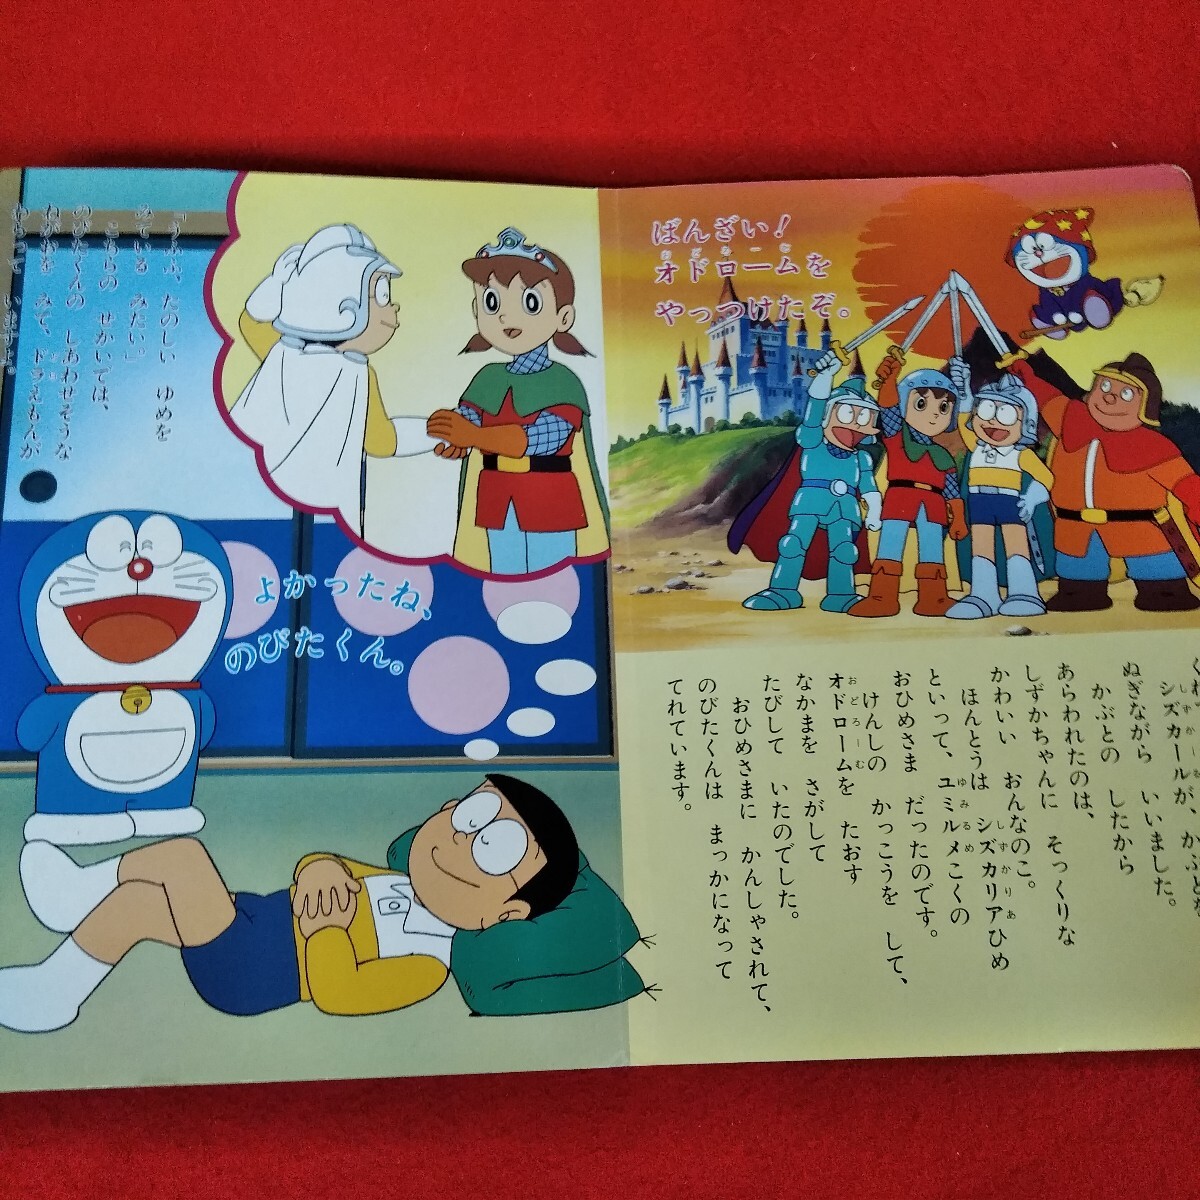 ばんざい!
オドロームを
おどろーむ
やっつけたぞ。
シズカールが、かぶとを
しずかーる
ぬぎながら いいました。
かぶとの したから
あらわれたのは、
しずかちゃんに そっくりな
かわいい おんなのこ。
ほんとうは シズカリアひめ
しずかりあ
といって、ユミルメこくの
ゆみるめ
おひめさま だったのです。
けんしの かっこうを して、
オドロームを たおす
おどろーむ
なかまを さがして
たびして いたのでした。
おひめさまに かんしゃされて、
のびたくんは まっかになって
てれています。
よかったね、
のびたくん。
「うふふ、たのしい ゆめを
みている みたい」
こちらの せかいでは、
のびたくんの しあわせそうな
ねがおを みて、ドラえもんが
どら
わらって いますよ。